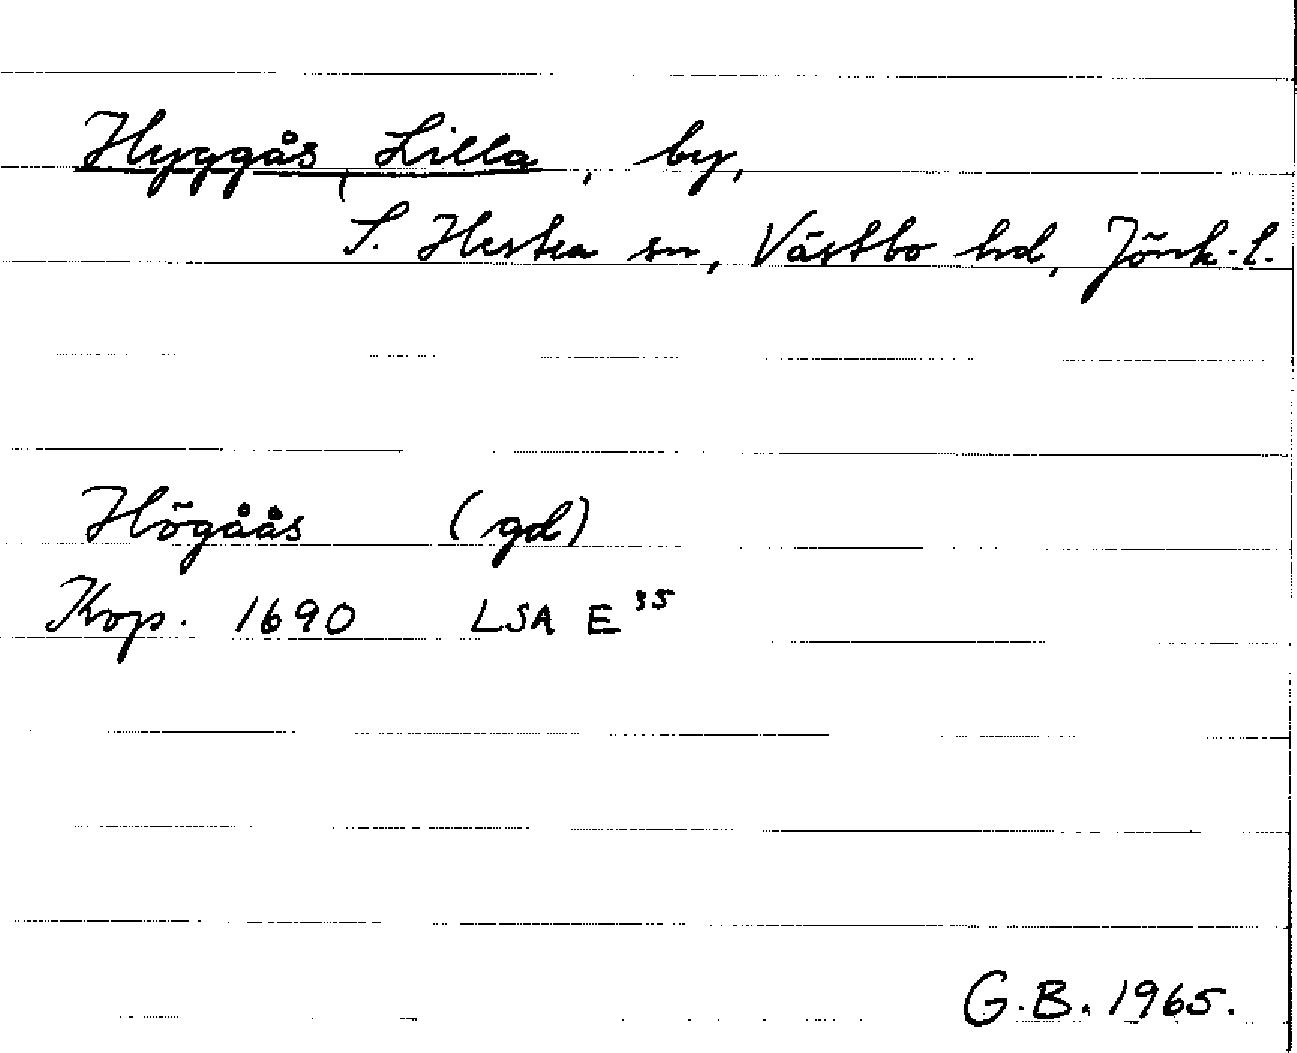 Hyggås, Lilla, by,
S. Hestra sn, Västbo hd, Jönk.l.
Högåås (gd)
Kop. 1690 LSA E³⁵
G.B. 1965.